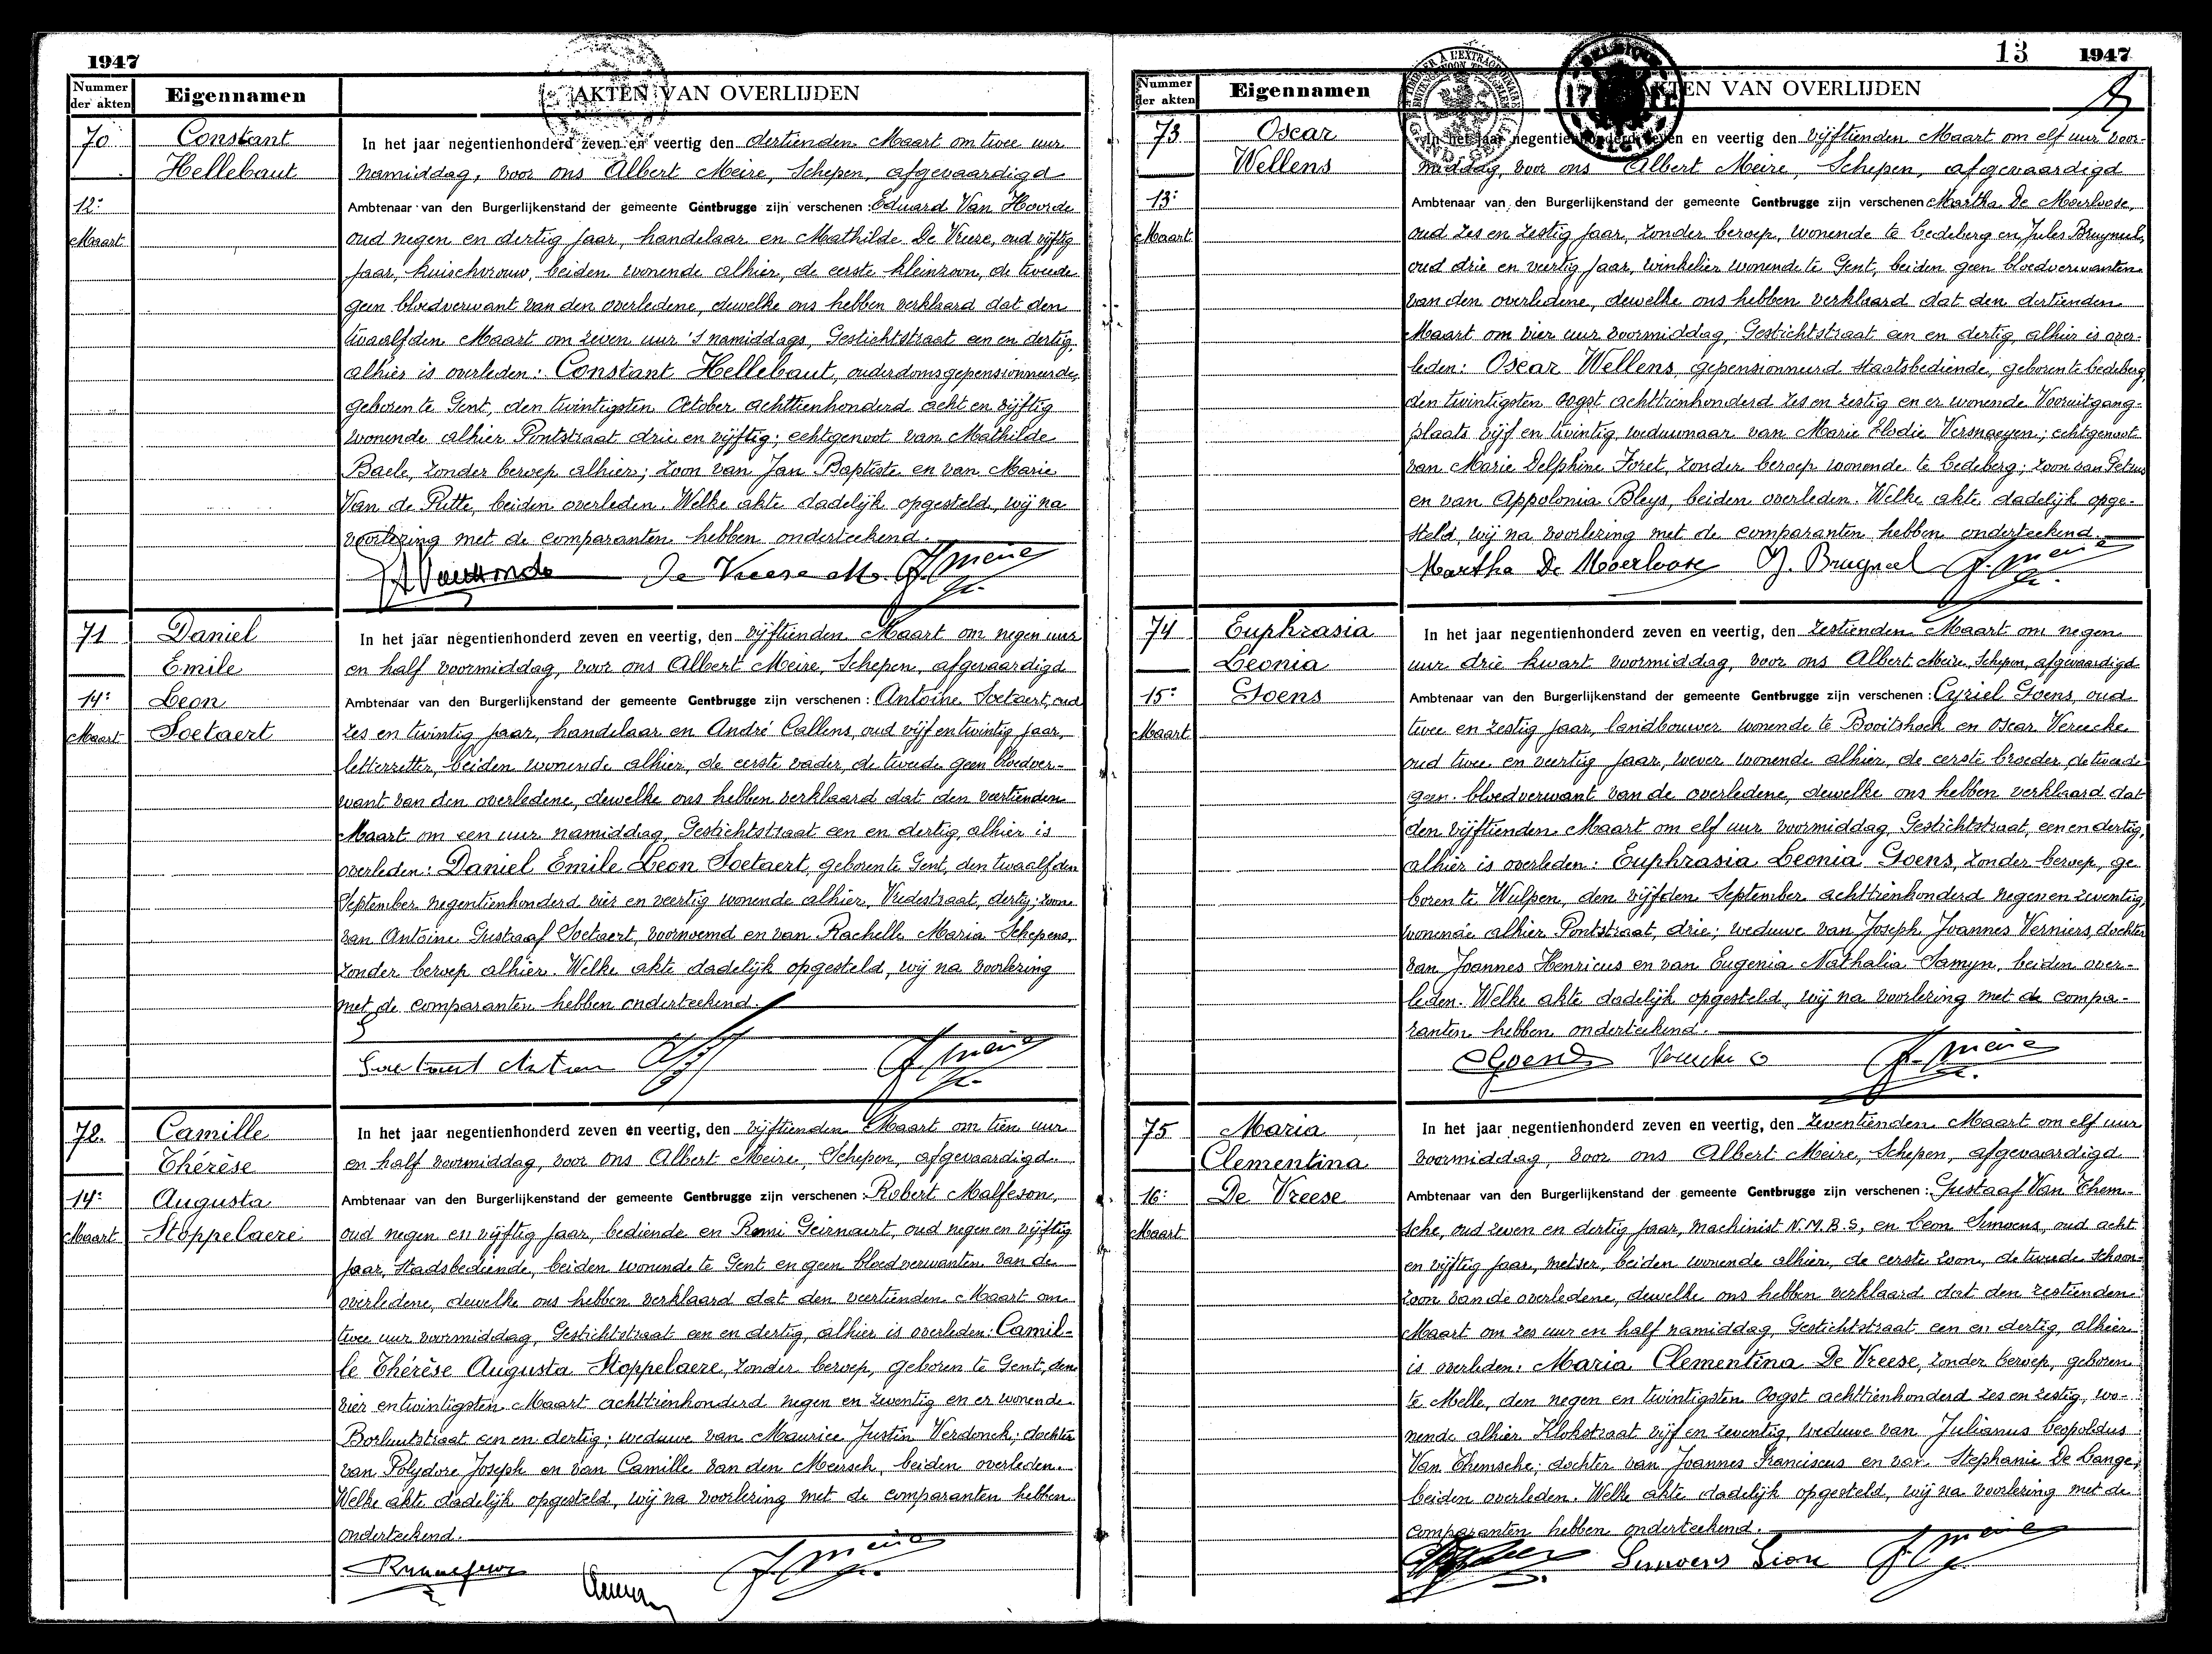 1947
Nummer der akten
Eigennamen
AKTEN VAN OVERLIJDEN
70
Constant
Hellebaut
12e
Maart
In het jaar negentienhonderd zeven en veertig den dertienden Maart om twee uur
namiddag, voor ons Albert Meire, Schepen, afgevaardigd
Ambtenaar van den Burgerlijkenstand der gemeente Gentbrugge zijn verschenen: Eduard Van Hoorde
oud negen en dertig jaar, handelaar en Mathilde De Vreese, oud vijftig
jaar, kuischvrouw, beiden wonende alhier, de eerste kleinzoon, de tweede
geen bloedverwant van den overledene, dewelke ons hebben verklaard dat den
twaalfden Maart om zeven uur 's namiddags, Gestichtstraat een en dertig,
alhier is overleden: Constant Hellebaut, ouderdomsgepensionneerde,
geboren te Gent, den twintigsten October achttienhonderd acht en vijftig
wonende alhier Pontstraat drie en vijftig; echtgenoot van Mathilde
Baele, zonder beroep alhier; zoon van Jan Baptiste en van Marie
Van de Putte, beiden overleden. Welke akte dadelijk opgesteld, wij na
voorlezing met de comparanten hebben onderteekend.
De Vreese M. A. Meire
71
Daniel
Emile
Leon
Soetaert
14e
Maart
In het jaar negentienhonderd zeven en veertig, den vijftienden Maart om negen uur
en half voormiddag, voor ons Albert Meire, Schepen, afgevaardigd
Ambtenaar van den Burgerlijkenstand der gemeente Gentbrugge zijn verschenen: Antoine Soetaert, oud
zes en twintig jaar, handelaar en André Callens, oud vijf en twintig jaar,
letterzetter, beiden wonende alhier, de eerste vader, de tweede geen bloedver-
want van den overledene, dewelke ons hebben verklaard dat den veertienden
Maart om een uur namiddag, Gestichtstraat een en dertig, alhier is
overleden: Daniel Emile Leon Soetaert, geboren te Gent, den twaalfden
September negentienhonderd vier en veertig wonende alhier, Vredestraat, dertig; zoon
van Antoine Gustaaf Soetaert, voornoemd en van Rachelle Maria Schepens,
zonder beroep alhier. Welke akte dadelijk opgesteld, wij na voorlezing
met de comparanten hebben onderteekend.
Soetaert Antoin A. Meire
72.
Camille
Thérèse
Augusta
Stoppelaere
14e
Maart
In het jaar negentienhonderd zeven en veertig, den vijftienden Maart om tien uur
en half voormiddag, voor ons Albert Meire, Schepen, afgevaardigd
Ambtenaar van den Burgerlijkenstand der gemeente Gentbrugge zijn verschenen: Robert Malfeson,
oud negen en vijftig jaar, bediende en Remi Geirnaert, oud negen en vijftig
jaar, stadsbediende, beiden wonende te Gent en geen bloedverwanten van de
overledene, dewelke ons hebben verklaard dat den veertienden Maart om
twee uur voormiddag, Gestichtstraat een en dertig, alhier is overleden: Camil-
le Thérèse Augusta Stoppelaere, zonder beroep, geboren te Gent, den
vier en twintigsten Maart achttienhonderd negen en zeventig en er wonende
Borluutstraat een en dertig; weduwe van Maurice Justin Verdonck; dochter
van Polydore Joseph en van Camille Van den Meersch, beiden overleden.
Welke akte dadelijk opgesteld, wij na voorlezing met de comparanten hebben
onderteekend.
A. Meire
13
1947
Nummer der akten
Eigennamen
AKTEN VAN OVERLIJDEN
73
Oscar
Wellens
13e
Maart
In het jaar negentienhonderd zeven en veertig den vijftienden Maart om elf uur voor-
middag, voor ons Albert Meire, Schepen, afgevaardigd
Ambtenaar van den Burgerlijkenstand der gemeente Gentbrugge zijn verschenen Martha De Moerloose,
oud zes en zestig jaar, zonder beroep, wonende te Ledeberg en Jules Bruyneel,
oud drie en veertig jaar, winkelier wonende te Gent, beiden geen bloedverwanten
van den overledene, dewelke ons hebben verklaard dat den dertienden
Maart om vier uur voormiddag, Gestichtstraat een en dertig, alhier is over-
leden: Oscar Wellens, gepensionneerd staatsbediende, geboren te Ledeberg,
den twintigsten Oogst achttienhonderd zes en zestig en er wonende Vooruitgang-
plaats vijf en twintig, weduwnaar van Marie Elodie Versnaeyen; echtgenoot
van Marie Delphine Foret, zonder beroep wonende te Ledeberg; zoon van Petrus
en van Appolonia Bleys, beiden overleden. Welke akte dadelijk opge-
steld, wij na voorlezing met de comparanten hebben onderteekend.
Martha De Moerloose J. Bruyneel A. Meire
74
Euphrasia
Leonia
Goens
15e
Maart
In het jaar negentienhonderd zeven en veertig, den zestienden Maart om negen
uur drie kwart voormiddag, voor ons Albert Meire, Schepen, afgevaardigd
Ambtenaar van den Burgerlijkenstand der gemeente Gentbrugge zijn verschenen: Cyriel Goens, oud
twee en zestig jaar, landbouwer wonende te Booitshoek en Oscar Vereecke
oud twee en veertig jaar, wever wonende alhier, de eerste broeder, de tweede
geen bloedverwant van de overledene, dewelke ons hebben verklaard dat
den vijftienden Maart om elf uur voormiddag, Gestichtstraat, een en dertig,
alhier is overleden: Euphrasia Leonia Goens, zonder beroep, ge
boren te Wulpen, den vijfden September achttienhonderd negen en zeventig,
wonende alhier Pontstraat, drie; weduwe van Joseph Joannes Verniers, dochter
van Joannes Henricus en van Eugenia Nathalia Samyn, beiden over-
leden. Welke akte dadelijk opgesteld, wij na voorlezing met de compa-
ranten hebben onderteekend.
CGoens Vereecke O A. Meire
75
Maria
Clementina
De Vreese
16e
Maart
In het jaar negentienhonderd zeven en veertig, den zeventienden Maart om elf uur
voormiddag, voor ons Albert Meire, Schepen, afgevaardigd
Ambtenaar van den Burgerlijkenstand der gemeente Gentbrugge zijn verschenen: Gustaaf Van Them-
sche, oud zeven en dertig jaar, machinist N.M.B.S, en Leon Simoens, oud acht
en vijftig jaar, metser, beiden wonende alhier, de eerste zoon, de tweede schoon-
zoon van de overledene, dewelke ons hebben verklaard dat den zestienden
Maart om zes uur en half namiddag, Gestichtstraat een en dertig, alhier
is overleden: Maria Clementina De Vreese, zonder beroep, geboren
te Melle, den negen en twintigsten Oogst achttienhonderd zes en zestig, wo-
nende alhier Klokstraat vijf en zeventig, weduwe van Julianus Leopoldus
Van Themsche; dochter van Joannes Franciscus en van Stephanie De Lange,
beiden overleden. Welke akte dadelijk opgesteld, wij na voorlezing met de
comparanten hebben onderteekend.
Simoens Lion A. Meire